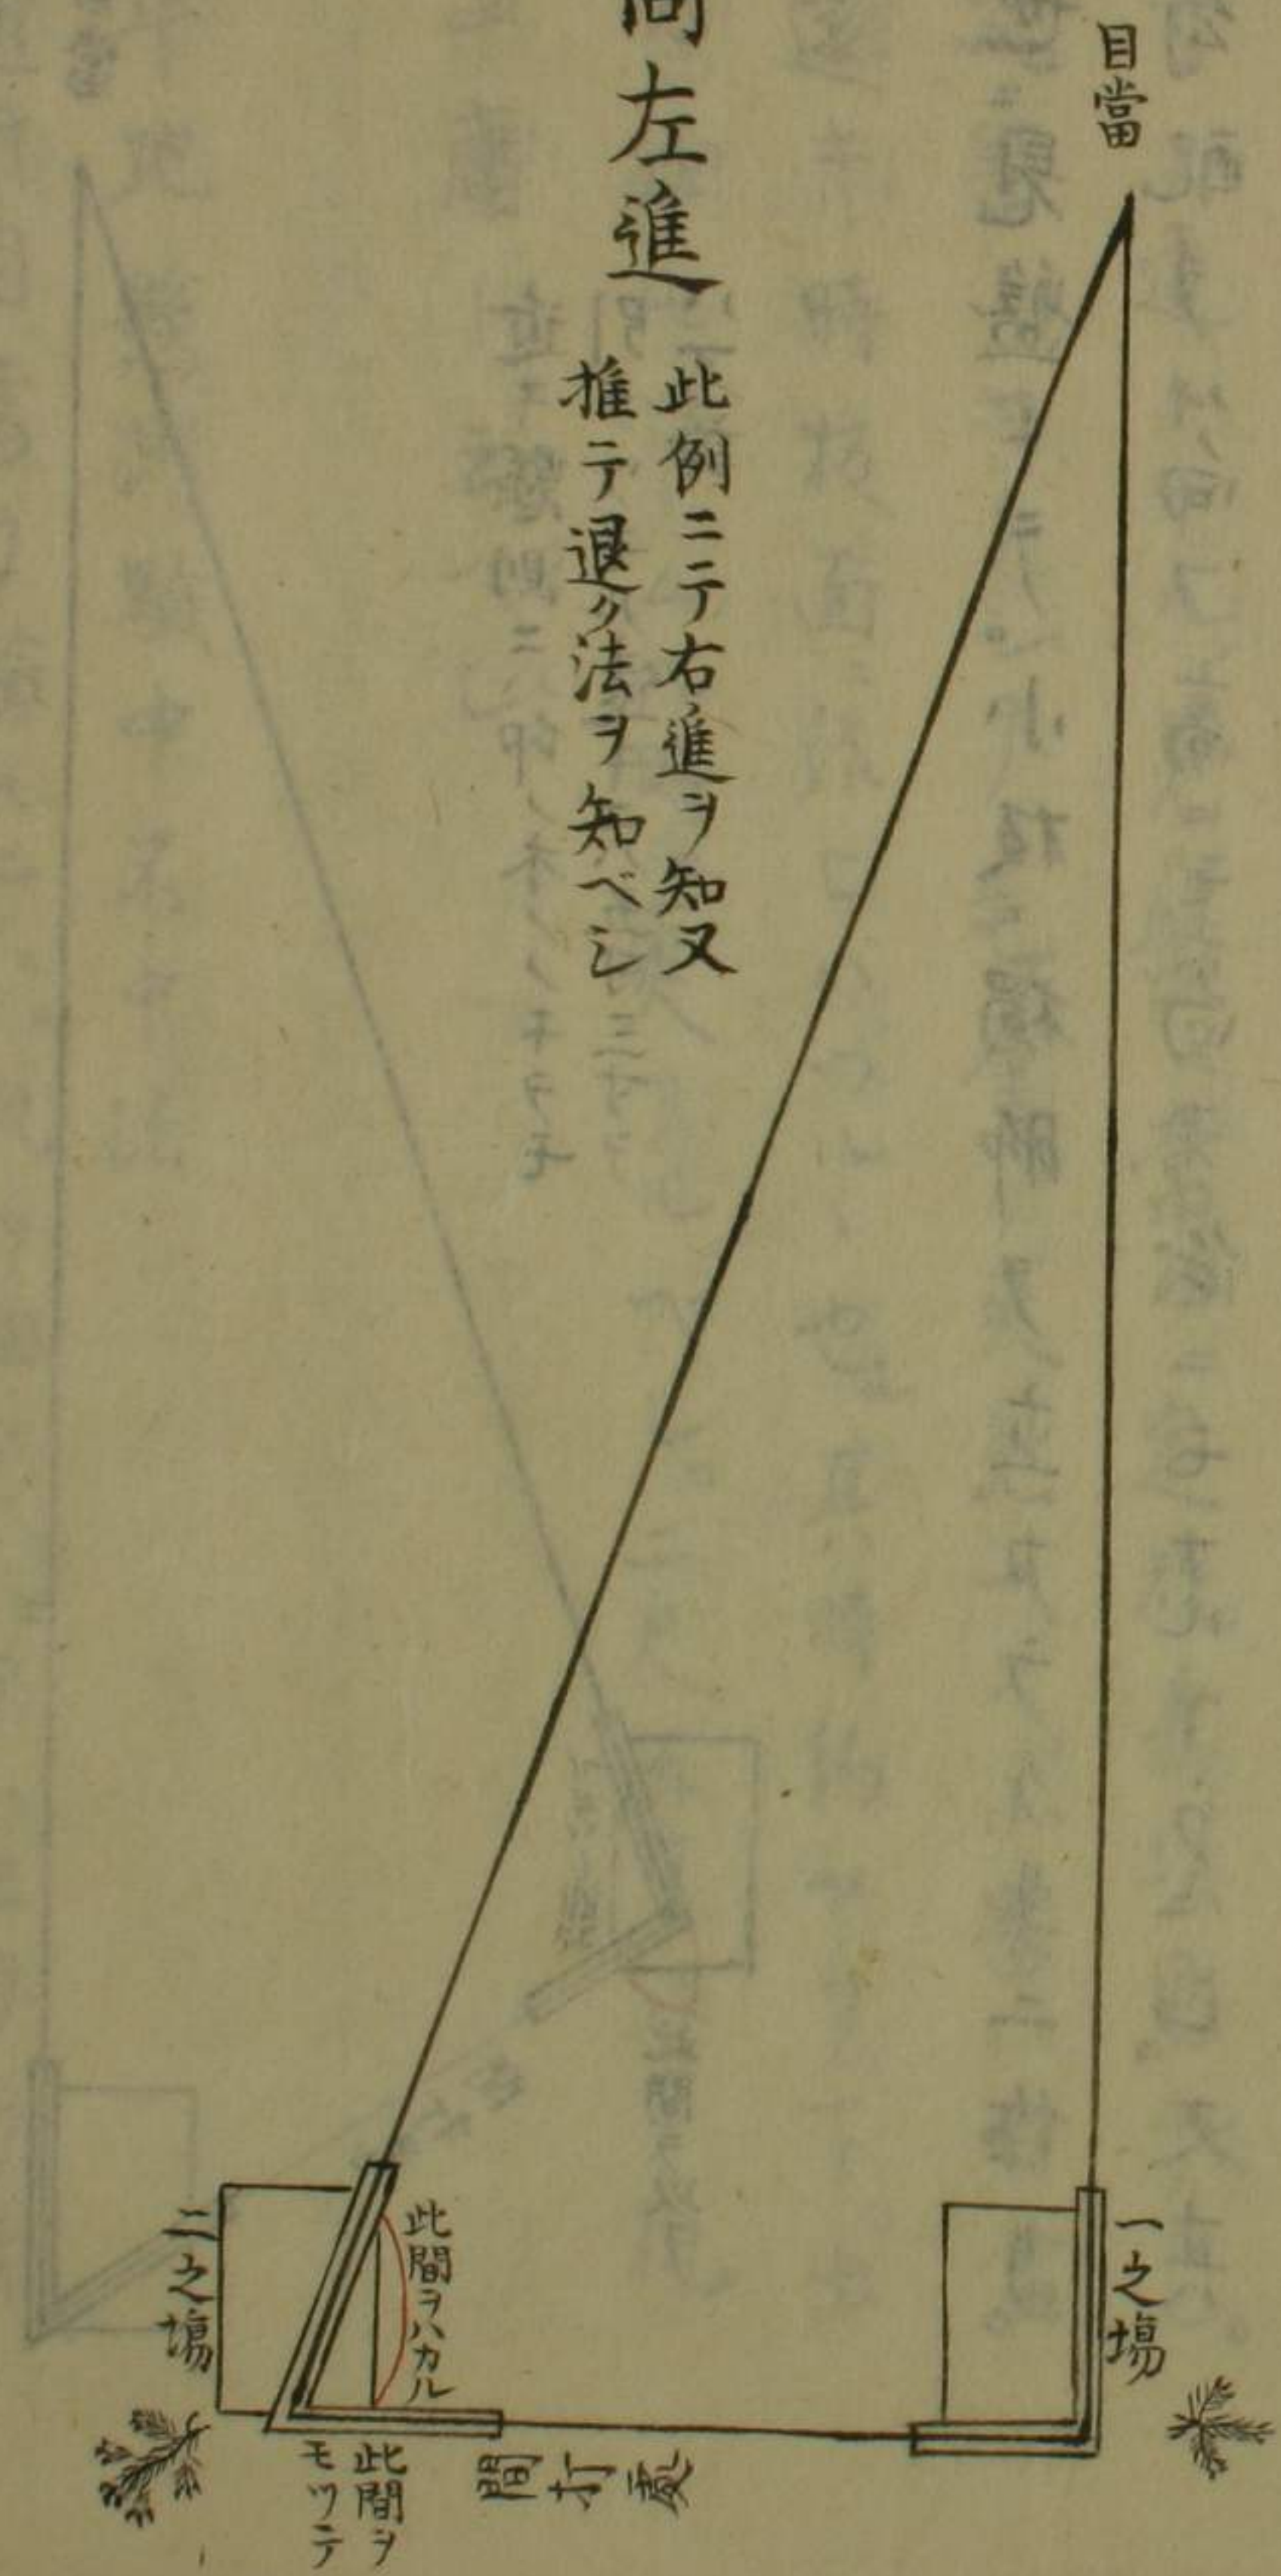 目當
同左進
此例ニテ右進ヲ知又
推テ退ク法ヲ知ベシ
一之場
二之場
此間ヲハカル
此間ヲ
モツテ
間打處